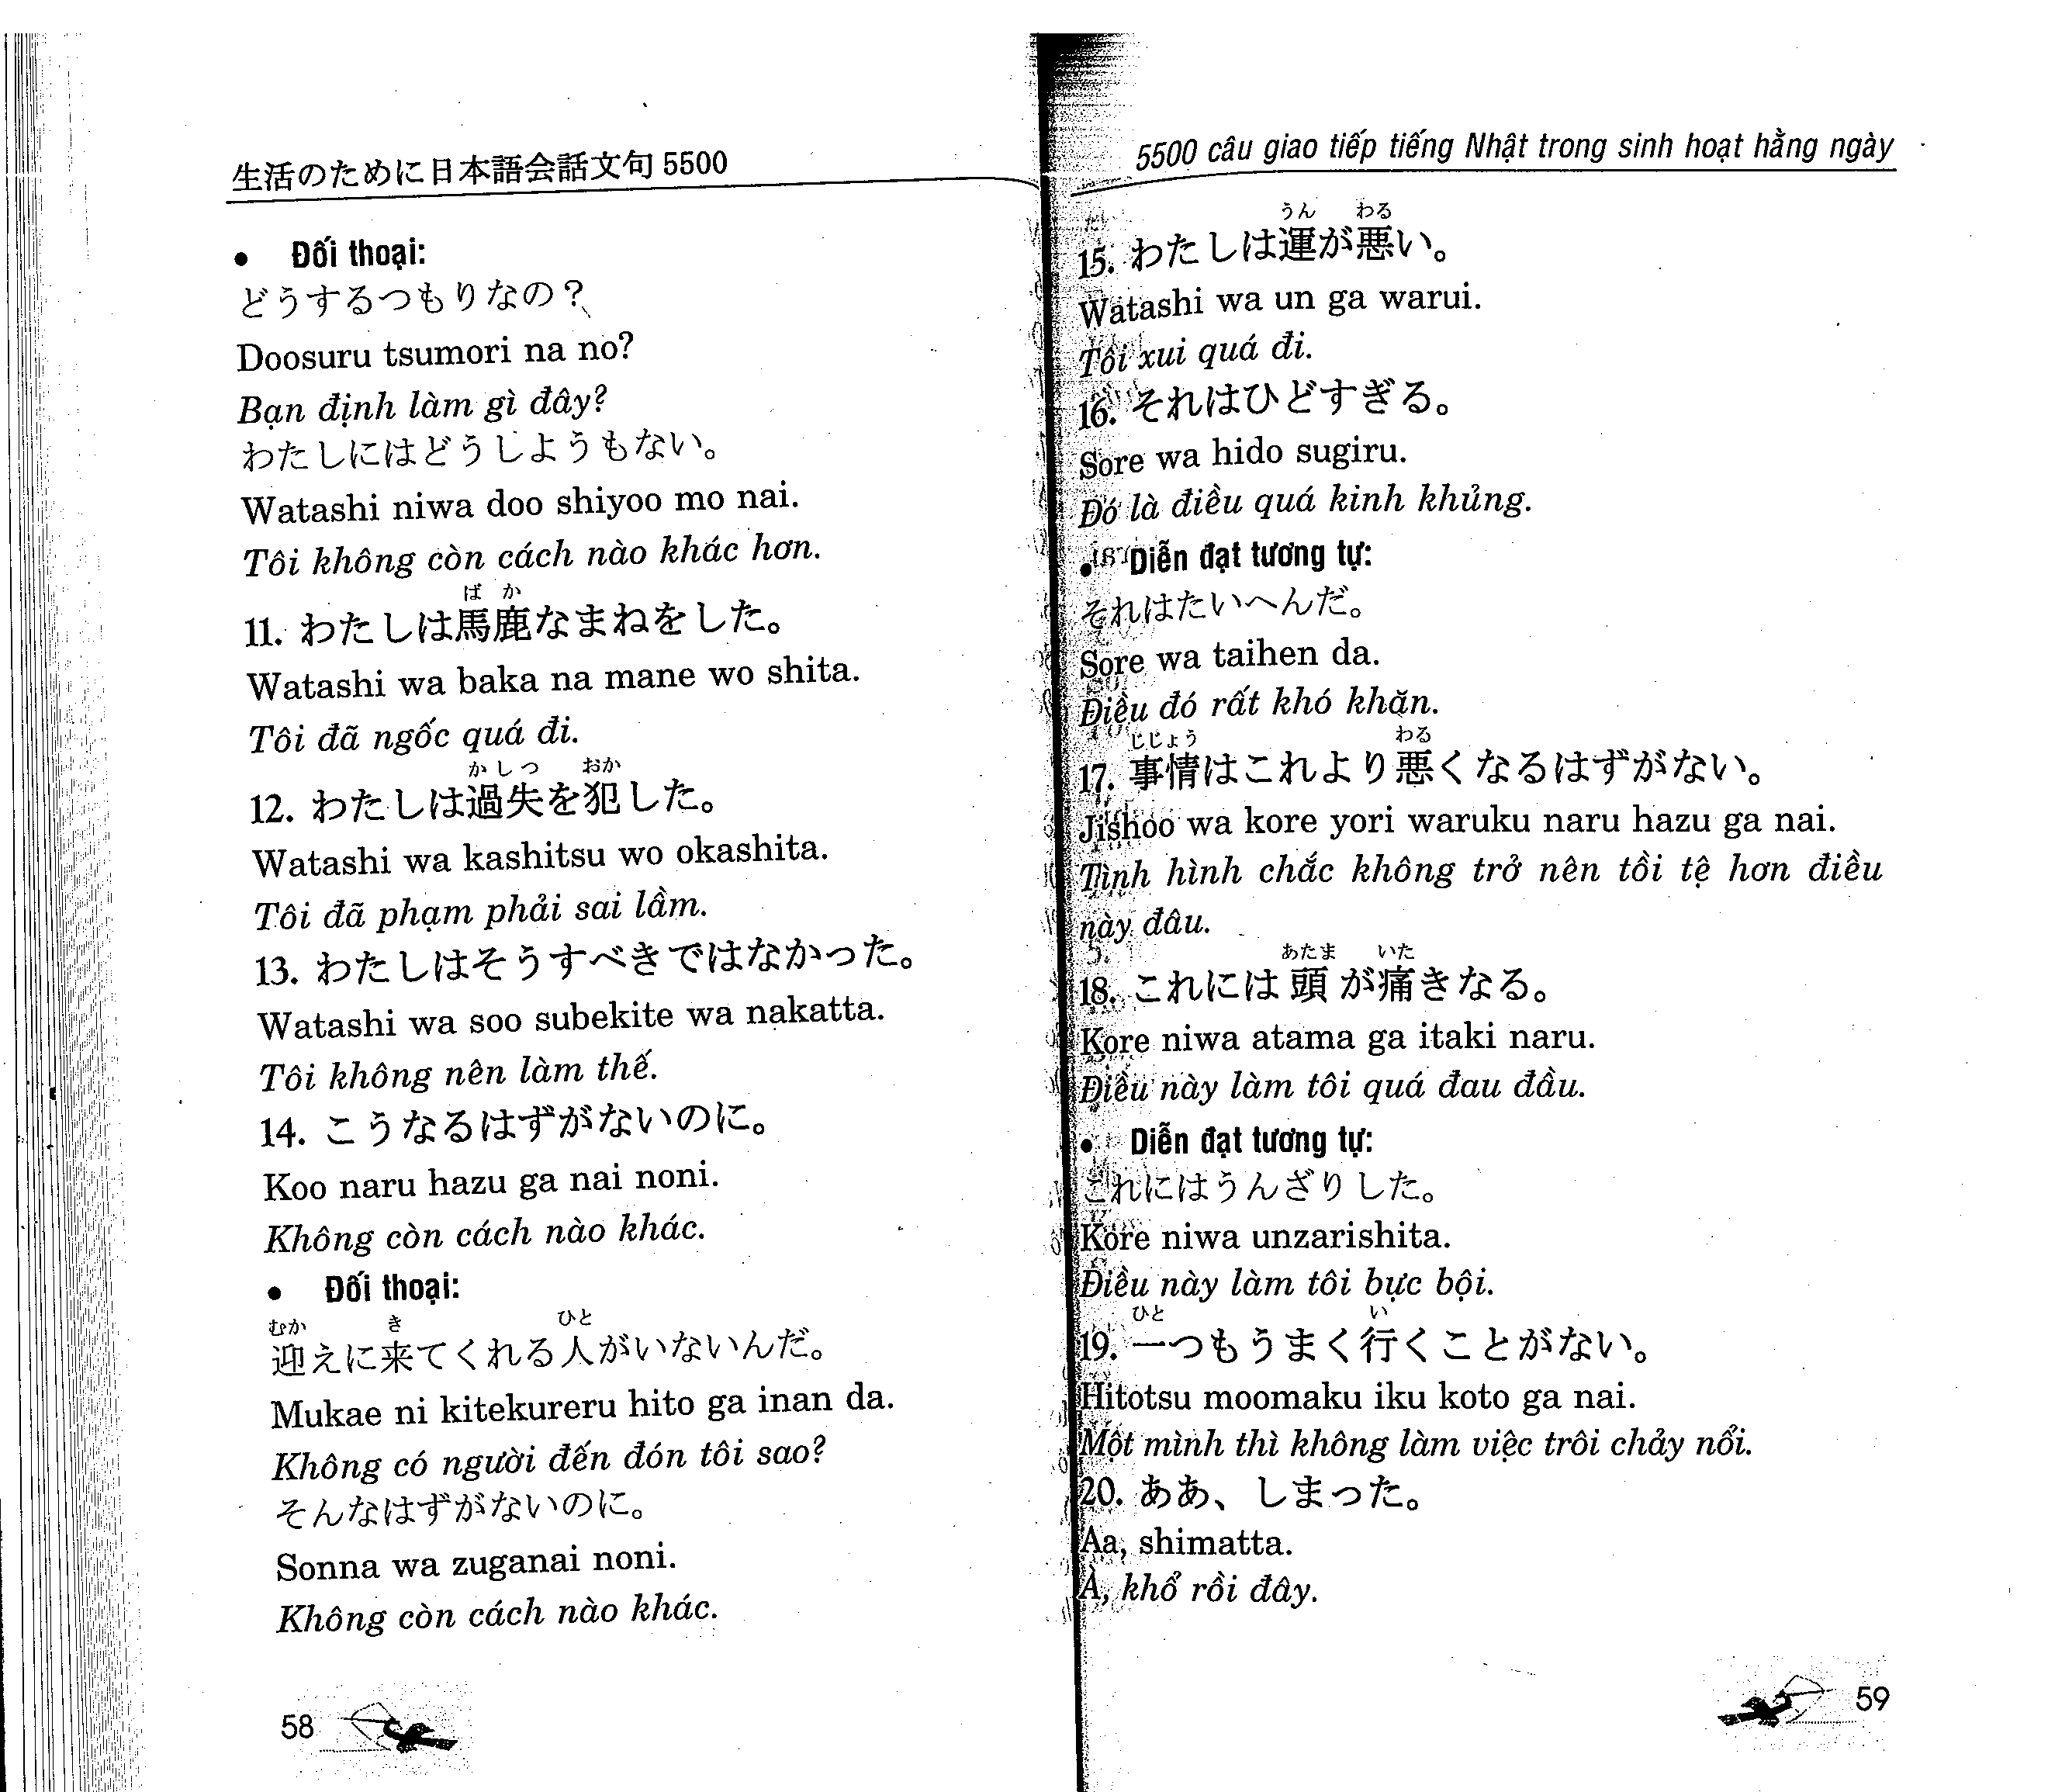 生活のために日本語会話文句 5500
• Đối thoại:
どうするつもりなの？
Doosuru tsumori na no?
Bạn định làm gì đây?
わたしにはどうしようもない。
Watashi niwa doo shiyoo mo nai.
Tôi không còn cách nào khác hơn.
ば か
11. わたしは馬鹿なまねをした。
Watashi wa baka na mane wo shita.
Tôi đã ngốc quá đi.
かしつ おか
12. わたしは過失を犯した。
Watashi wa kashitsu wo okashita.
Tôi đã phạm phải sai lầm.
13. わたしはそうすべきではなかった。
Watashi wa soo subekite wa nakatta.
Tôi không nên làm thế.
14. こうなるはずがないのに。
Koo naru hazu ga nai noni.
Không còn cách nào khác.
• Đối thoại:
むか き ひと
迎えに来てくれる人がいないんだ。
Mukae ni kitekureru hito ga inan da.
Không có người đến đón tôi sao?
そんなはずがないのに。
Sonna wa zuganai noni.
Không còn cách nào khác.
58
5500 câu giao tiếp tiếng Nhật trong sinh hoạt hằng ngày
うん わる
15. わたしは運が悪い。
Watashi wa un ga warui.
Tôi xui quá đi.
16. それはひどすぎる。
Sore wa hido sugiru.
Đó là điều quá kinh khủng.
• Diễn đạt tương tự:
それはたいへんだ。
Sore wa taihen da.
Điều đó rất khó khăn.
じじょう わる
17. 事情はこれより悪くなるはずがない。
Jishoo wa kore yori waruku naru hazu ga nai.
Tình hình chắc không trở nên tồi tệ hơn điều
này đâu.
あたま いた
18. これには頭が痛きなる。
Kore niwa atama ga itaki naru.
Điều này làm tôi quá đau đầu.
• Diễn đạt tương tự:
これにはうんざりした。
Kore niwa unzarishita.
Điều này làm tôi bực bội.
ひと い
19. 一つもうまく行くことがない。
Hitotsu moomaku iku koto ga nai.
Một mình thì không làm việc trôi chảy nổi.
20. ああ、しまった。
Aa, shimatta.
À, khổ rồi đây.
59